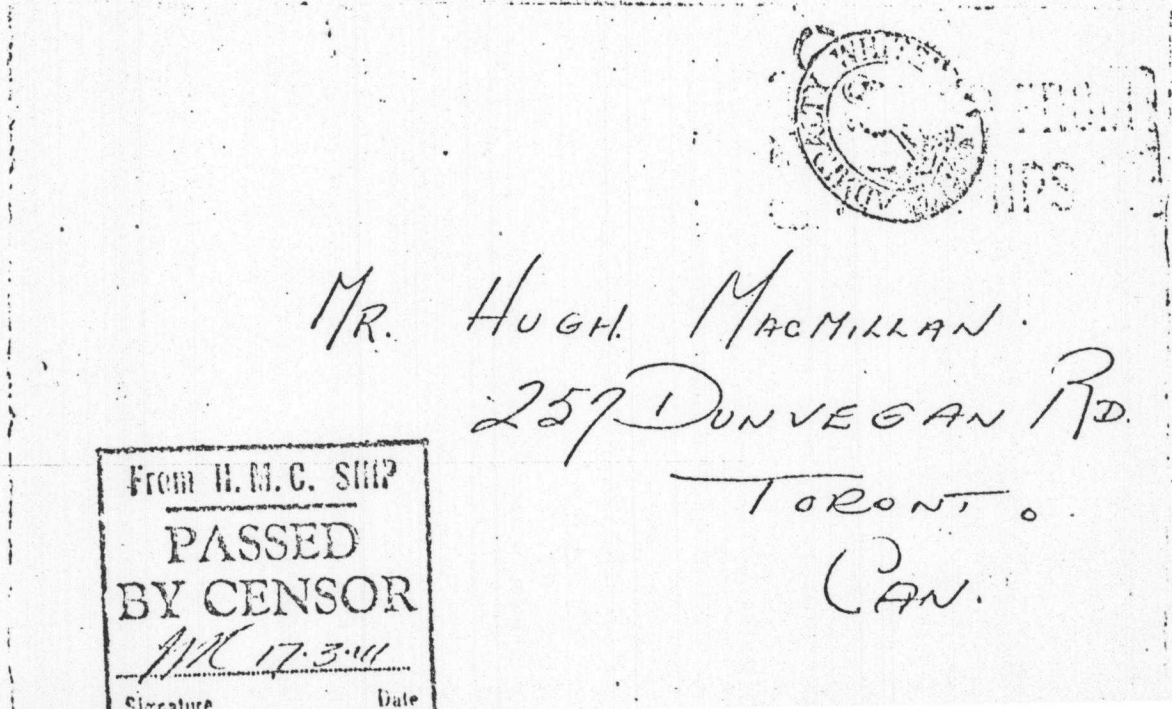 ADMIRALTY WHITE
HIPS
MR. HUGH MACMILLAN.
257 DUNVEGAN RD.
TORONTO
CAN.
From H.M.C. SHIP
PASSED
BY CENSOR
17.3.41
Signature Date